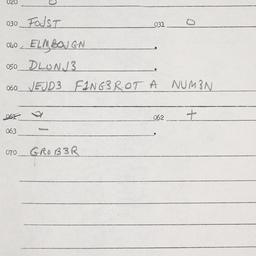 020
030 FOJST 031 O
040 ELMBOJGN .
050 DLONJ3
060 JEJD3 F1NG3ROT A NUM3N
062 +
063 – .
070 GROB3R